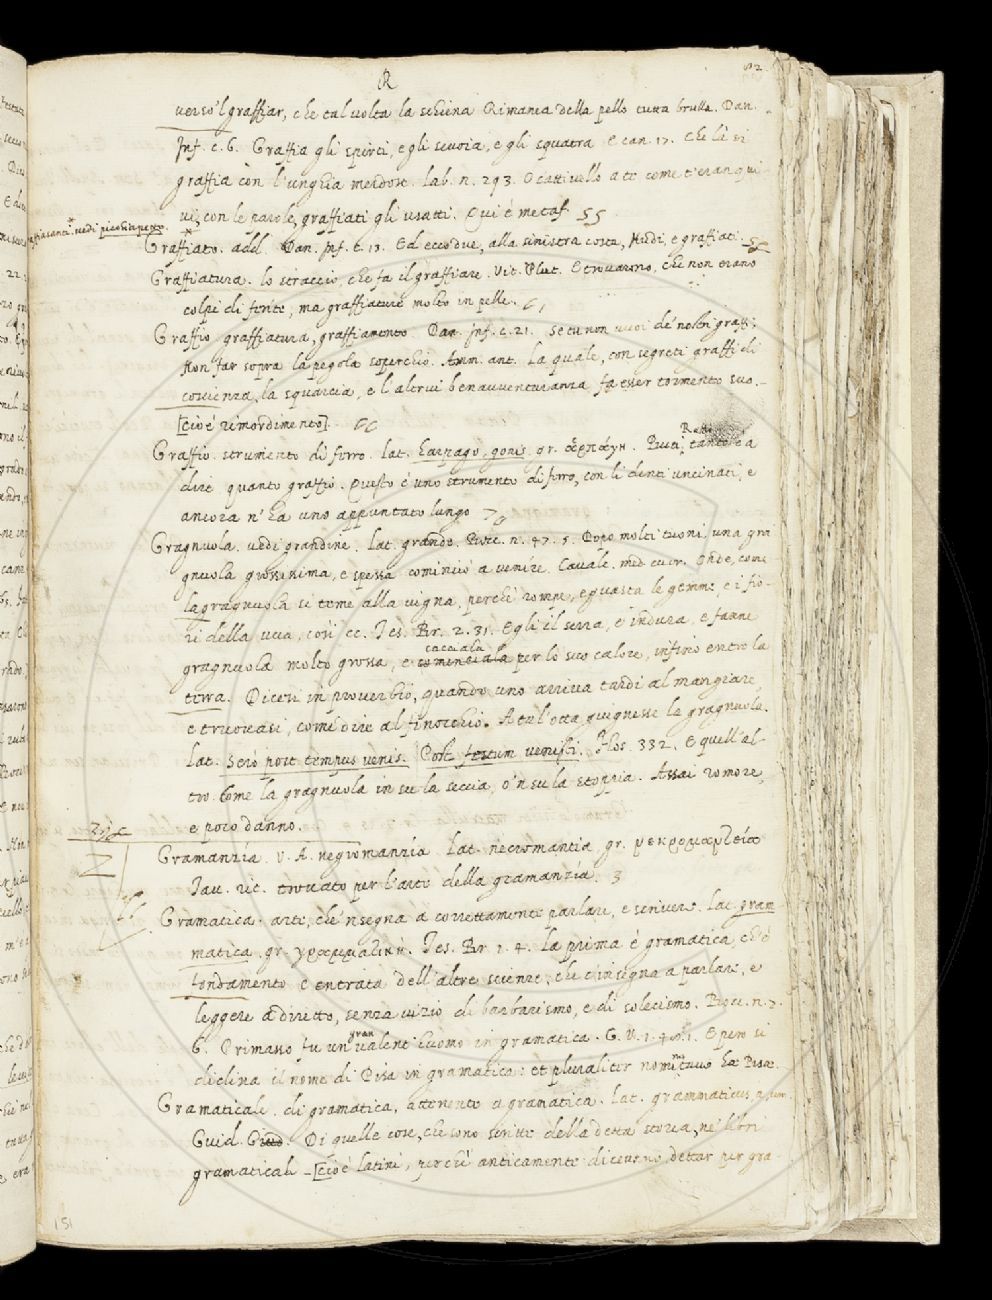 R
82
verso 'l graffiar, che talvolta la schiena Rimanea della pelle tutta brulla. Dan.
Inf. c. 6. Graffia gli spirti, e gli scuoia, e gli squatra. E can. 17. Che li si
graffia con l'unghia merdose. Lab. n. 293. O cattivello a te come t'eran qui
vi, con le parole, graffiati gli usatti. Qui è metaf. 55
graffiasanti. vedi picchiapetto.
Graffiato. add. Dan. Inf. c. 13. Ed ecco due, alla sinistra costa, Nudi, e graffiati.
Graffiatura. lo straccio, che fa il graffiare. Vit. Plut. E trovarono, che non erano
colpi di ferite, ma graffiature molto in pelle. 61
Graffio graffiatura, graffiamento. Dan. Inf. c. 21. Se tu non vuoi de' nostri graffi,
Non far sopra la pegola soperchio. Amm. ant. La quale, con segreti graffi di
coscienza, la squarcia, e l'altrui benavventuranza, fa esser tormento suo.
[cioè rimordimento]. 66
Graffio. strumento di ferro. lat. harpago, gonis. gr. ἁρπάγη. Buti, tanto è a
dire quanto graffio. Questo è uno strumento di ferro, con li denti uncinati, e
ancora n' ha uno appuntato lungo 70
Gragnuola. vedi grandine. lat. grando. Bocc. n. 47. 5. Dopo molti tuoni, una gra
gnuola grossissima, e spessa cominciò a venire. Cavalc. med. cuor. Onde, come
la gragnuola si teme alla vigna, perchè rompe, e guasta le gemme, e i fio-
ri della uva, così ec. Tes. Br. 2. 31. Egli il serra, e indura, e fanne
cacciala
gragnuola molto grossa, e cominciala per lo suo calore, infino entro la
terra. Dicesi in proverbio, quando uno arriva tardi al mangiare,
e truovasi, come dire al finocchio. A tal' otta giugnesse la gragnuola.
Lat. Serò post tempus venis. Post festum venisti. Flos. 332. E quell' al-
tro. Come la gragnuola in su la seccia, o 'n su la stoppia. Assai romore,
e poco danno.
Gramanzia. V. A. negromanzia. Lat. necromantia, gr.
Tav. rit. trovato per l'arte della gramanzia. 3
Gramatica. arte, che 'nsegna a correttamente parlare, e scrivere. Lat. gram
matica. gr. γραμματικὴ. Tes. Br. 1. 4. La prima è gramatica, ch' è
fondamento e entrata dell' altre scienze, che c' insegna a parlare, e
leggere a diritto, senza vizio di barbarismo, e di solecismo. Bocc. n. 7.
gran
6. Primasso fu un valent' huomo in gramatica. G. V. 1. E però si
declina il nome di Pisa in gramatica: et pluraliter nominativo hæ Pisæ.
Gramaticale. di gramatica, attenente a gramatica. Lat. grammaticus, a, um.
Guid. Giud. Di quelle cose, che sono scritte della detta storia, ne' libri
gramaticali [cioè latini, perchè anticamente dicevano dettar per gra-
151